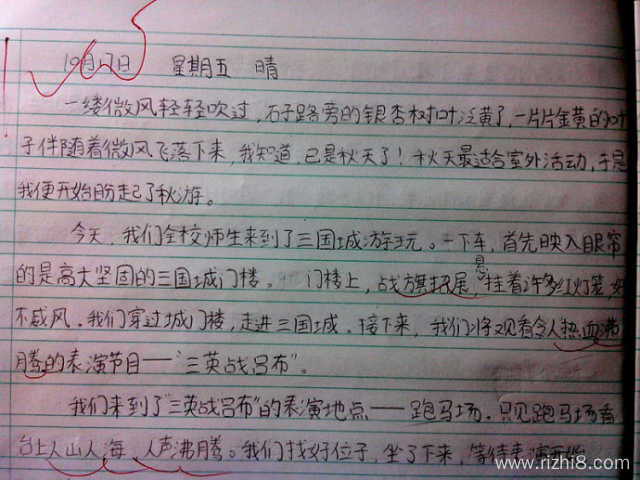 10月17日 星期五 晴
一缕微风轻轻吹过,石子路旁的银杏树叶泛黄了,一片片金黄的叶
子伴随着微风飞落下来,我知道,已是秋天了!秋天最适合室外活动,于是
我便开始盼起了秋游。
今天,我们全校师生来到了三国城游玩。一下车,首先映入眼帘
的是高大坚固的三国城门楼。门楼上,战旗招展,挂着许多红灯笼,好
不威风。我们穿过城门楼,走进三国城。接下来,我们将观看令人热血沸
腾的表演节目——“三英战吕布”。
我们来到了“三英战吕布”的表演地点——跑马场。只见跑马场看
台上人山人海,人声沸腾。我们找好位子,坐了下来,等待表演开始
www.rizhi8.com